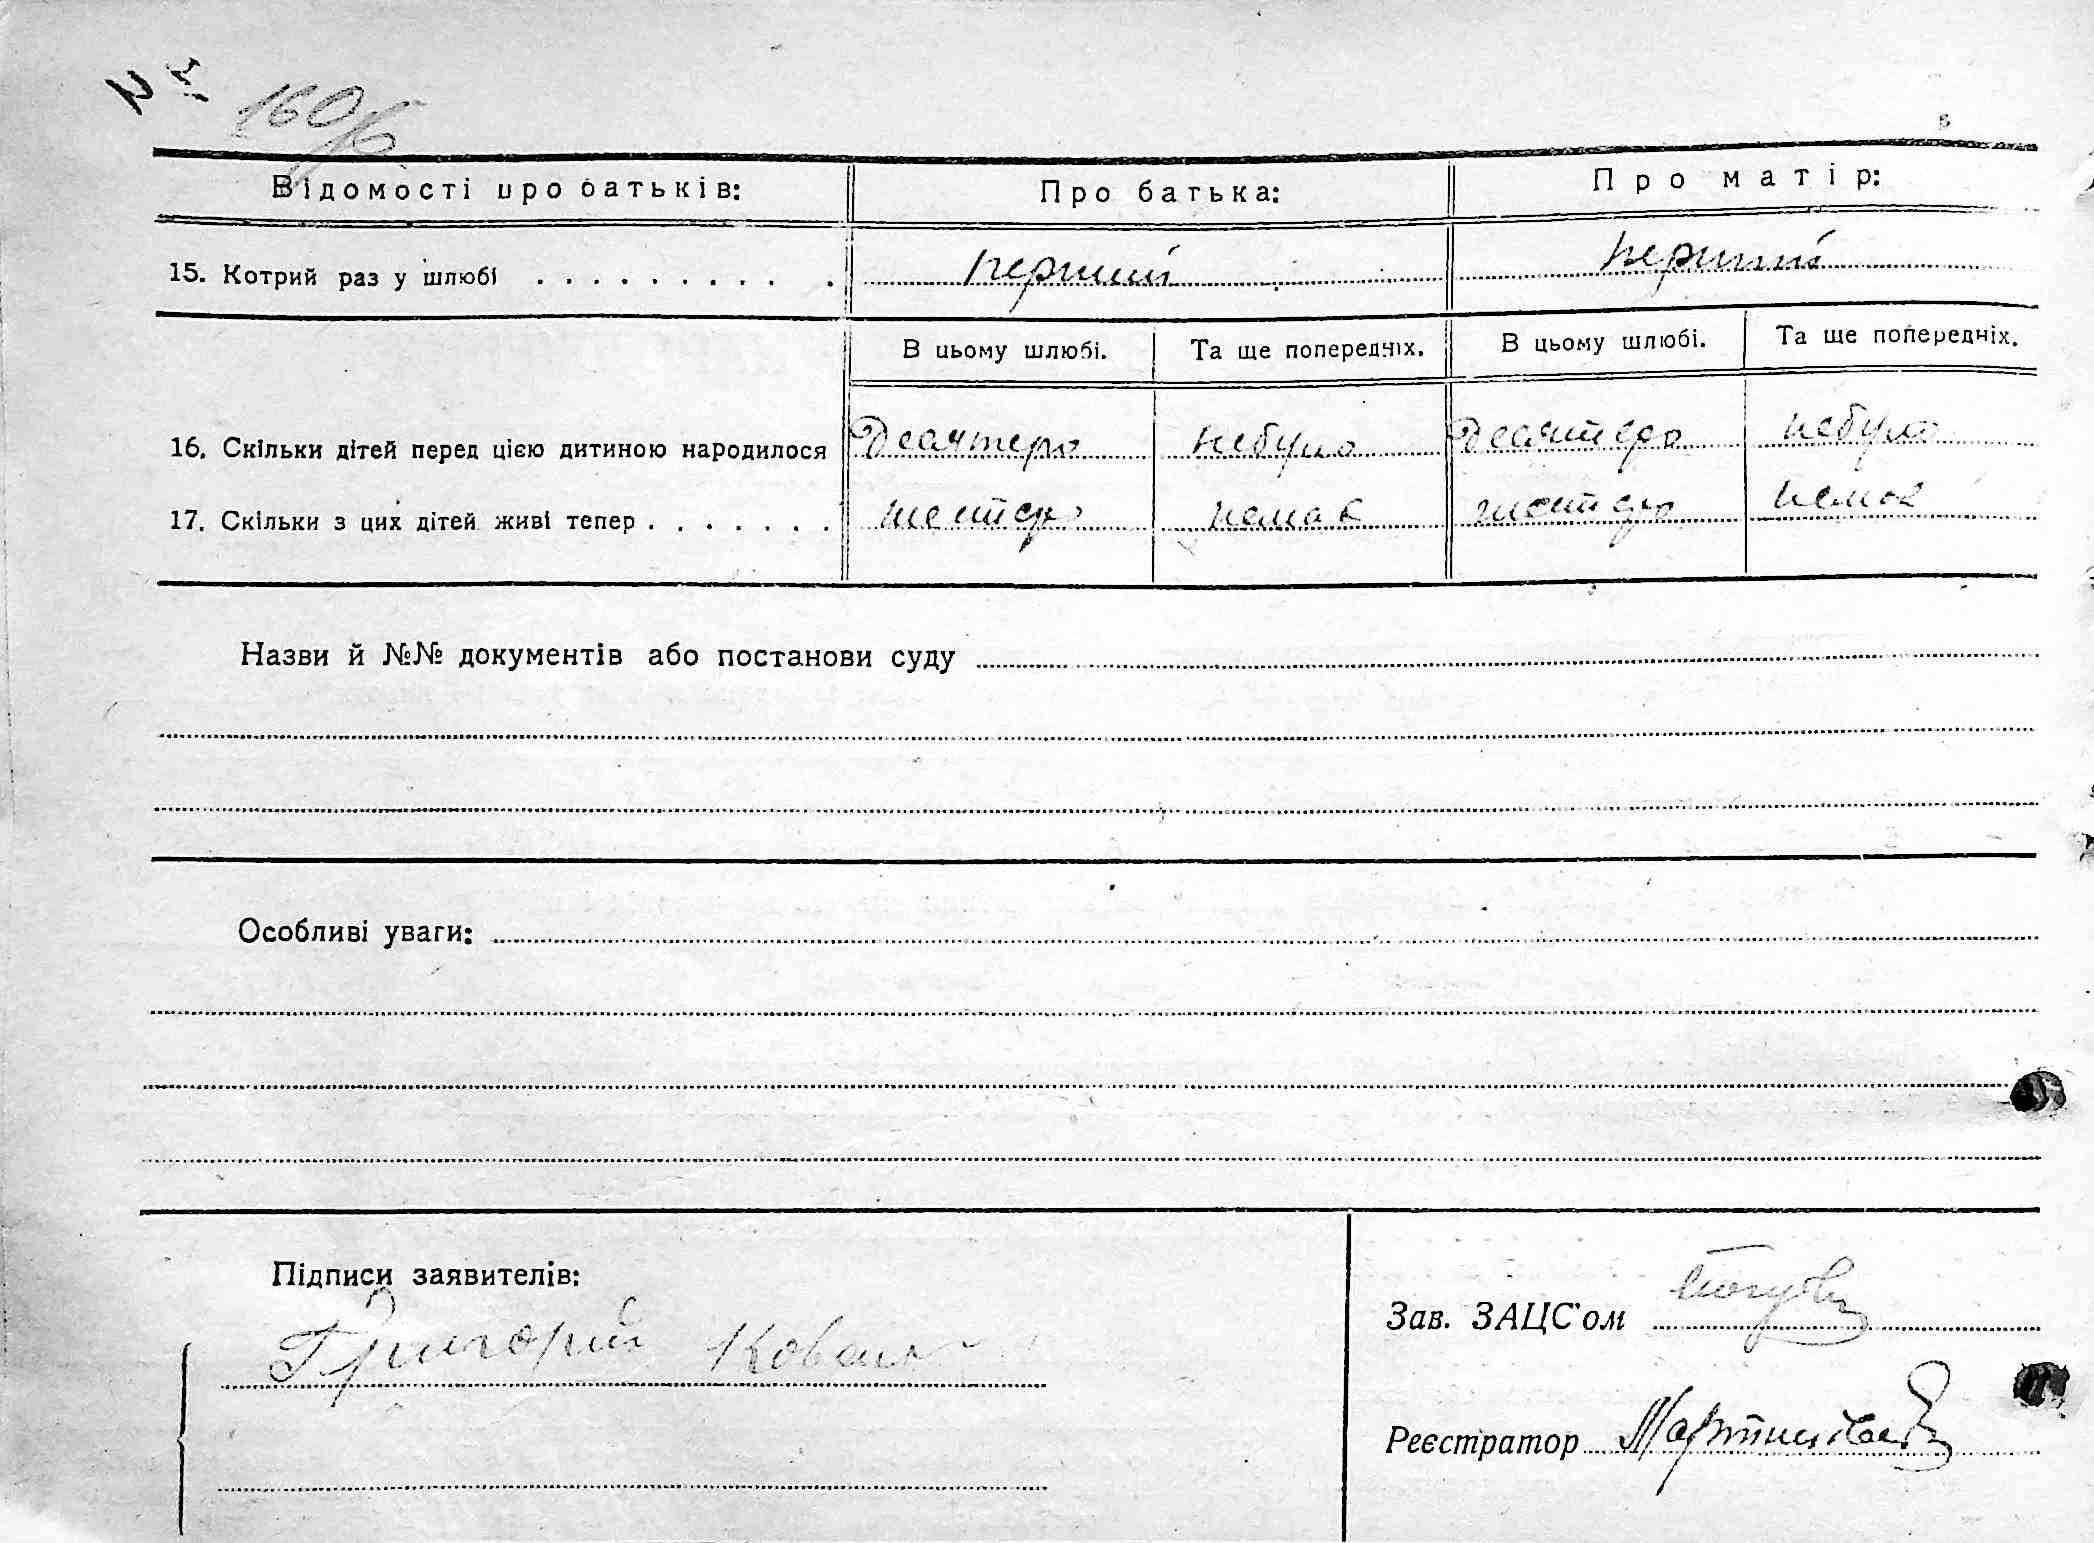 160/б
Відомості про батьків: Про батька: Про матір:
15. Котрий раз у шлюбі . . . . . . . . . . перший перший
В цьому шлюбі. Та ще попередніх. В цьому шлюбі. Та ще попередніх.
16. Скільки дітей перед цією дитиною народилося Десятеро небуло Десятеро небуло
17. Скільки з цих дітей живі тепер . . . . . . . шестеро немає шестеро немає
Назви й №№ документів або постанови суду
Особливі уваги:
Підписи заявителів:
Григорий Коваль
Зав. ЗАЦС'ом
Реєстратор